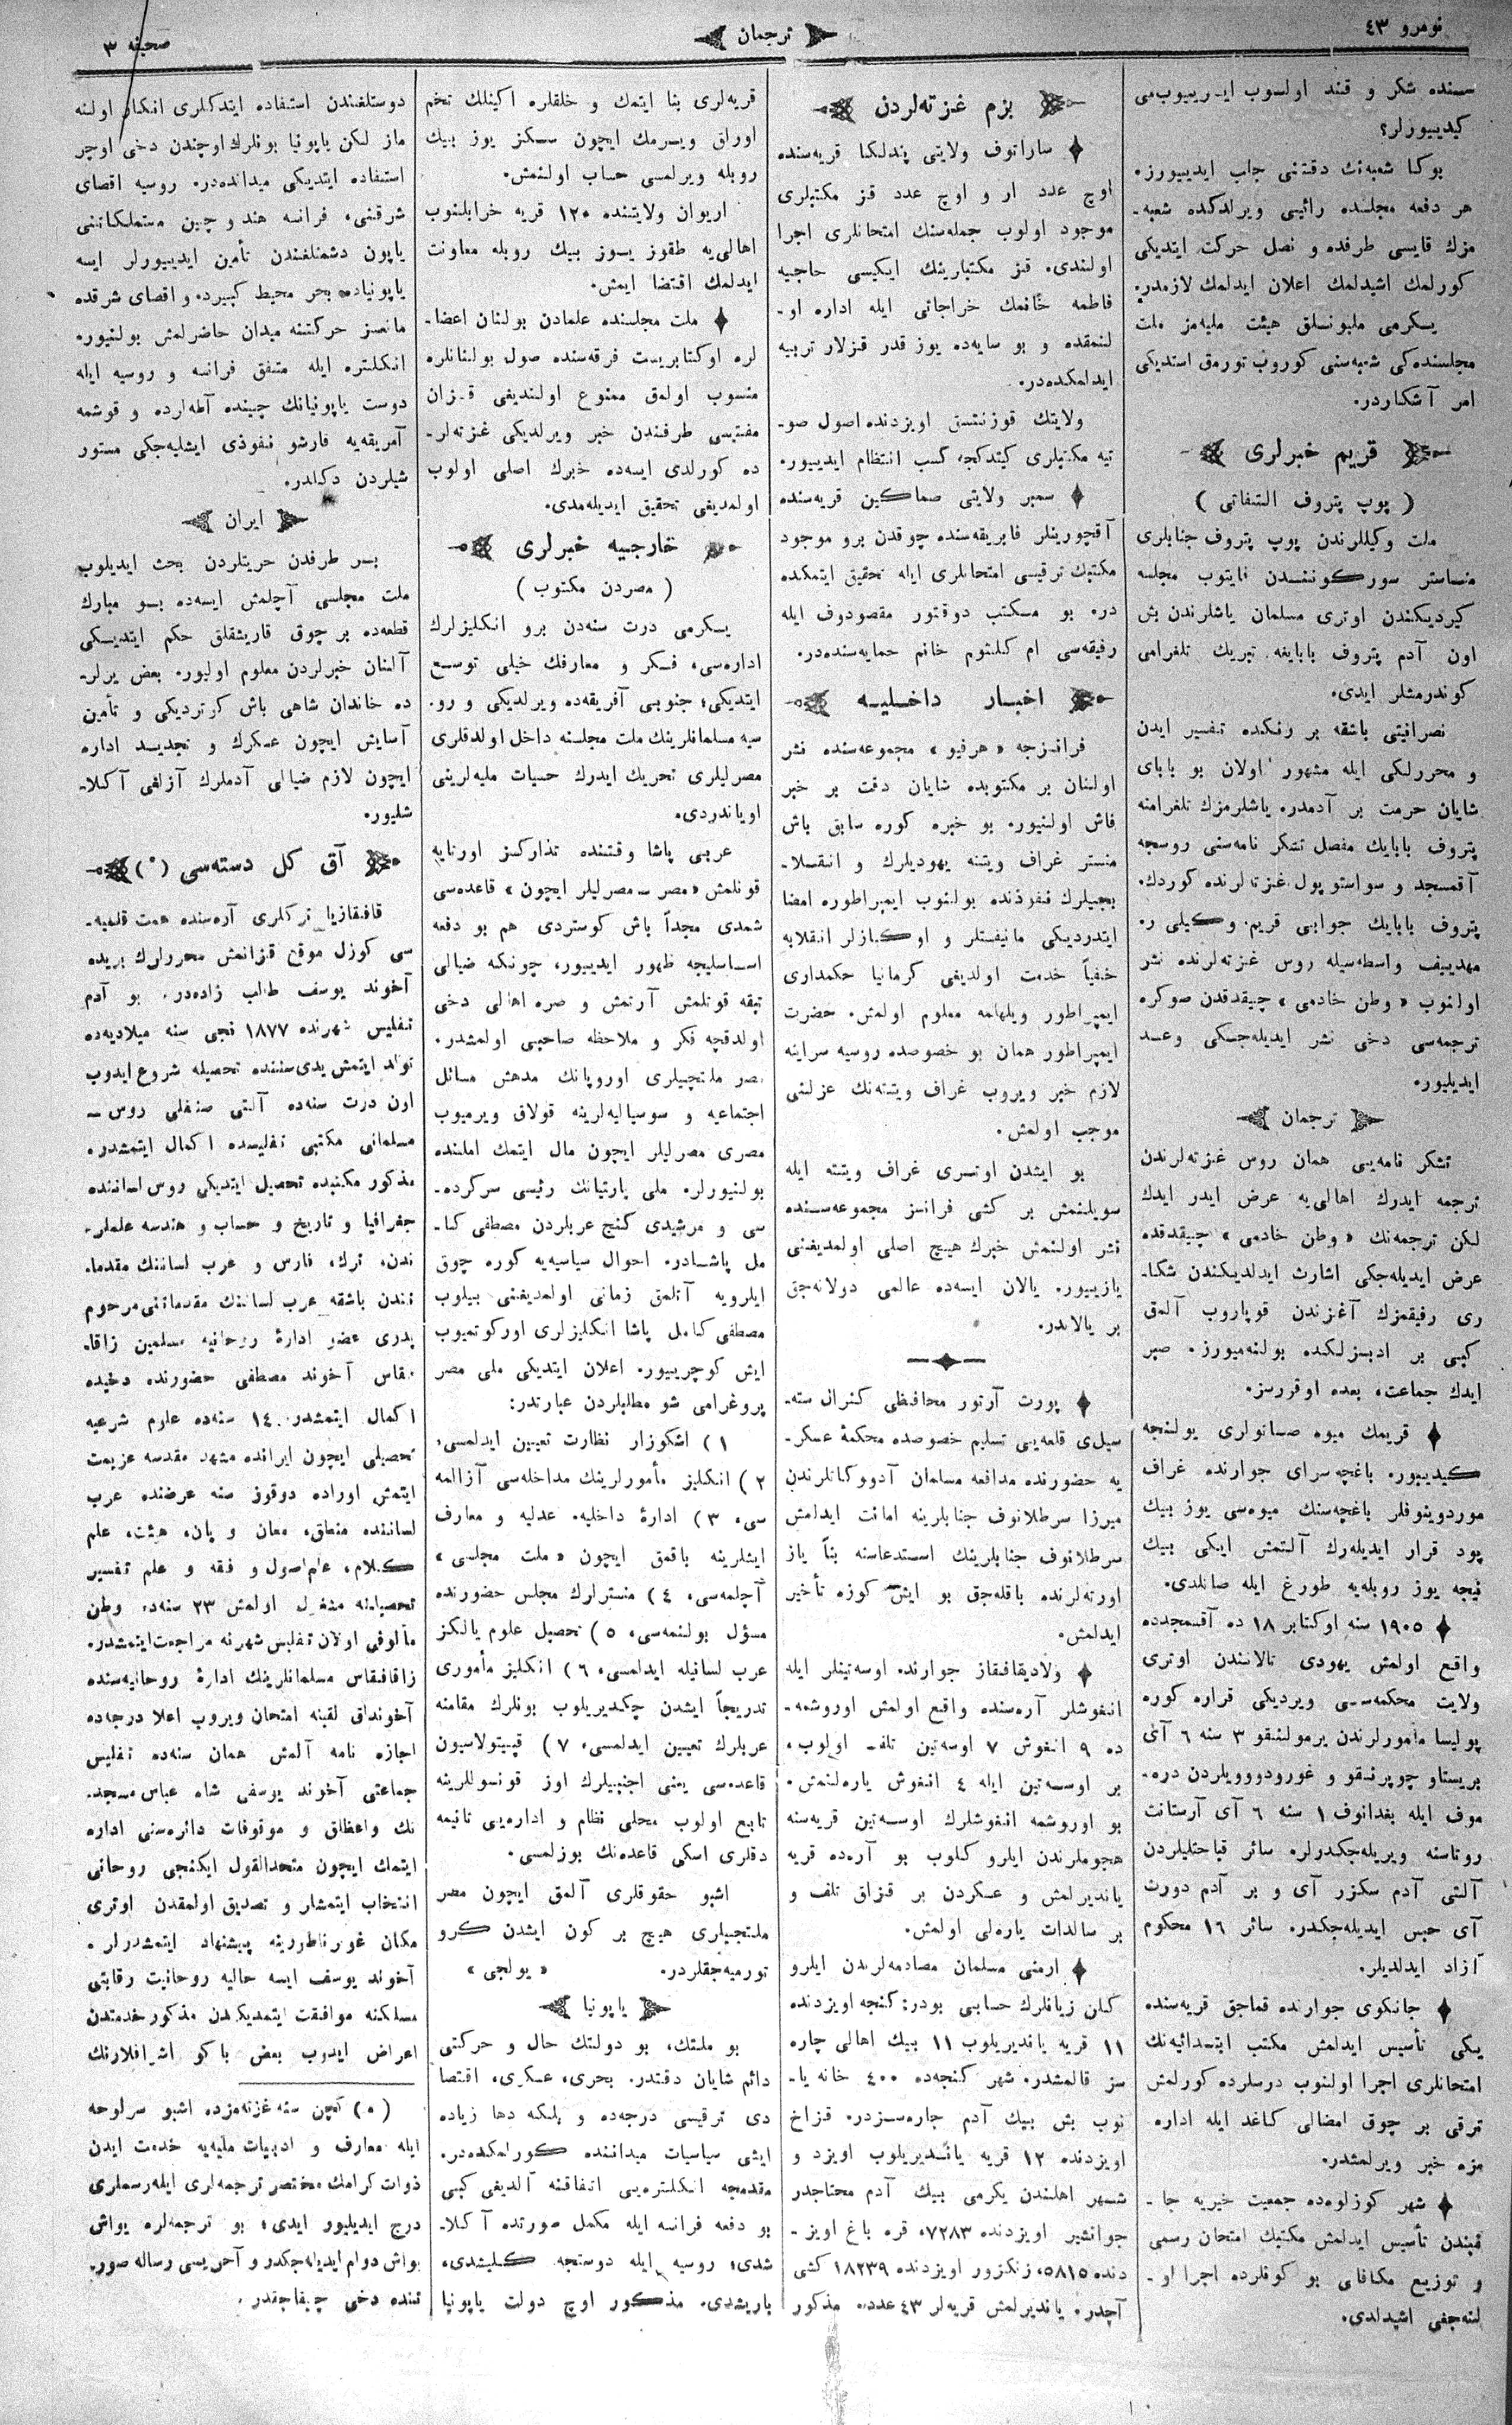 نومرو ٤٣
ترجمان
صحیفه ٣
سنده شکر و قند اولسوب ایدرییوب‌می
کیدییورلر؟
بوکا شعبه‌نڭ دقتنی جلب ایدییورز.
هر دفعه مجلسده رائیی ویرلدکده شعبه‌ـ
مزك قایسی طرفده و نصل حرکت ایتدیکی
کورلمك اشیدلمك اعلان ایدلمك لازمدر.
یکرمی ملیونلق هیئت ملیه‌مز ملت
مجلسنده‌کی شعبه‌سنی کوروب تورمق استدیکی
امر آشکاردر.
قریم خبرلری
( پوپ پتروف التفاتی )
ملت وکیللرندن پوپ پتروف جنابلری
مناستر سورکونندن قایتوب مجلسه
کیردیکندن اوتری مسلمان یاشلرندن بش
اون آدم پتروف بابایغه تبریك تلغرامی
کوندرمشلر ایدی.
نصرانیتی باشقه بر رنکده تفسیر ایدن
و محررلکی ایله مشهور اولان بو بابای
شایان حرمت بر آدمدر. یاشلرمزك تلغرامنه
پتروف بابایك مفصل تشکر نامه‌سنی روسجه
آقمسجد و سواستوپول غزته‌لرنده کوردك.
پتروف بابایك جوابی قریم وکیلی ر.
مهدییف واسطه‌سیله روس غزته‌لرنده نشر
اولنوب « وطن خادمی » چیقدقدن صوکره
ترجمه‌سی دخی نشر ایدیله‌جکی وعد
ایدیلیور.
ترجمان
تشکر نامه‌یی همان روس غزته‌لرندن
ترجمه ایدرك اهالی‌یه عرض ایدر ایدك
لکن ترجمه‌نك « وطن خادمی » چیقدقده
عرض ایدیله‌جکی اشارت ایدلدیکندن شکاـ
ری رفیقمزك آغزندن قوپاروب آلمق
کبی بر ادبزلکده بولنه‌میورز. صبر
ایدك جماعت، بعده اوقررسز.
قریمك میوه صانولری یولنجه
کیدییور. باغچه‌سرای جوارنده غراف
موردوینوفلر باغچه‌سنك میوه‌سی یوز بیك
پود قرار ایدیله‌رك آلتمش ایکی بیك
نیجه یوز روبله‌یه طورغ ایله صاتلدی.
١٩٠٥ سنه اوکتابر ١٨ ده آقمسجدده
واقع اولمش یهودی تالانندن اوتری
ولایت محکمه‌سی ویردیکی قراره کوره
پولیسا مأمورلرندن یرمولنقو ٣ سنه ٦ آی
پریستاو چوپرنقو و غورودوویلردن دره‌ـ
موف ایله بغدانوف ١ سنه ٦ آی آرستانت
روتاسنه ویریله‌جکدرلر. سائر قباحتلیلردن
آلتی آدم سکزر آی و بر آدم دورت
آی حبس ایدیله‌جکدر. سائر ١٦ محکوم
آزاد ایدلدیلر.
جانکوی جوارنده قماجق قریه‌سنده
یکی تأسیس ایدلمش مکتب ابتدائیه‌نك
امتحانلری اجرا اولنوب درسلرده کورلمش
ترقی بر چوق امضالی کاغد ایله اداره
مزه خبر ویرلمشدر.
شهر کوزلوه‌ده جمعیت خیریه جاـ
نبندن تأسیس ایدلمش مکتبك امتحان رسمی
و توزیع مکافای بو کونلرده اجرا اوـ
لنه‌جغی اشیدلدی.
بزم غزته‌لردن
ساراتوف ولایتی پندلکا قریه‌سنده
اوچ عدد ار و اوچ عدد قز مکتبلری
موجود اولوب جمله‌سنك امتحانلری اجرا
اولندی. قز مکتبلرینك ایکیسی حاجیه
فاطمه خانمك خراجاتی ایله اداره اوـ
لنمقده و بو سایه‌ده یوز قدر قزلار تربیه
ایدلمکده‌در.
ولایتك قوزنتسق اویزدنده اصول صوـ
تیه مکتبلری کیتدکجه کسب انتظام ایدییور.
سمبر ولایتی صماکین قریه‌سنده
آقچورینلر فابریقه‌سنده چوقدن برو موجود
مکتبك ترقیسی امتحانلری ایله تحقیق ایتمکده
در. بو مکتب دوقتور مقصودوف ایله
رفیقه‌سی ام کلثوم خانم حمایه‌سنده‌در.
اخبار داخلیه
فرانسزجه « هرفیو » مجموعه‌سنده نشر
اولنان بر مکتوبده شایان دقت بر خبر
فاش اولنیور. بو خبره کوره سابق باش
منستر غراف ویتنه یهودیلرك و انقلاـ
بجیلرك نفوذنده بولنوب ایمپراطوره امضا
ایتدردیکی مانیفستلر و اوکازلر انقلابه
خفیاً خدمت اولدیغی کرمانیا حکمداری
ایمپراطور ویلهلمه معلوم اولمش. حضرت
ایمپراطور همان بو خصوصده روسیه سراینه
لازم خبر ویروب غراف ویتته‌نك عزلنی
موجب اولمش.
بو ایشدن اوتری غراف ویتته ایله
سویلنمش بر کشی فرانسز مجموعه‌سنده
نشر اولنمش خبرك هیچ اصلی اولمدیغنی
یازییور. یالان ایسه‌ده عالمی دولانه‌جق
بر یالاندر.
پورت آرتور محافظی کنرال ستـه‌
سیلی قلعه‌یی تسلیم خصوصده محکمهٔ عسکرـ
یه حضورنده مدافعه مسلمان آدووکاتلرندن
میرزا سرطلانوف جنابلرینه امانت ایدلمش
سرطلانوف جنابلرینك استدعاسنه بناً یاز
اورته‌لرنده باقله‌جق بو ایش کوزه تأخیر
ایدلمش.
ولادیقافقاز جوارنده اوسه‌تینلر ایله
انغوشلر آره‌سنده واقع اولمش اوروشمه‌ـ
ده ٩ انغوش ٧ اوسه‌تین تلف اولوب،
بر اوسه‌تین ایله ٤ انغوش یاره‌لنمش.
بو اوروشمه انغوشلرك اوسه‌تین قریه‌سنه
هجوملرندن ایلرو کلوب بو آره‌ده قریه
یاندیرلمش و عسکردن بر قزاق تلف و
بر سالدات یاره‌لی اولمش.
ارمنی مسلمان مصادمه‌لرندن ایلرو
کلن زیانلرك حسابی بودر: کنجه اویزدنده
١١ قریه یاندیریلوب ١١ بیك اهالی چاره
سز قالمشدر. شهر کنجه‌ده ٤٠٠ خانه یاـ
نوب بش بیك آدم جاره‌سزدر. قزاخ
اویزدنده ١٢ قریه یاندیریلوب اویزد و
شهر اهلندن یکرمی بیك آدم محتاجدر
جوانشیر اویزدنده ٧٢٨٣، قره باغ اویزـ
دنده ٥٨١٥، زنکزور اویزدنده ١٨٢٣٩ کشی
آچدر. یاندیرلمش قریه‌لر ٤٣ عدد. مذکور
قریه‌لری بنا ایتمك و خلقلره اکینلك تخم
اوراق ویرمك ایچون سکز یوز بیك
روبله ویرلمسی حساب اولنمش.
اریوان ولایتنده ١٢٠ قریه خرابلنوب
اهالی‌یه طقوز یوز بیك روبله معاونت
ایدلمك اقتضا ایمش.
ملت مجلسنده علمادن بولنان اعضاـ
لره اوکتابریست فرقه‌سنده صول بولنانلره
منسوب اولمق ممنوع اولندیغی قزان
مفتیسی طرفندن خبر ویرلدیکی غزته‌لرـ
ده کورلدی ایسه‌ده خبرك اصلی اولوب
اولمدیغی تحقیق ایدیله‌مدی.
خارجیه خبرلری
( مصردن مکتوب )
یکرمی درت سنه‌دن برو انکلیزلرك
اداره‌سی، فکر و معارفك خیلی توسع
ایتدیکی؛ جنوبی آفریقه‌ده ویرلدیکی و روـ
سیه مسلمانلرینك ملت مجلسنه داخل اولدقلری
مصرلیلری تحریك ایدرك حسیات ملیه‌لرینی
اویاندردی.
عربی پاشا وقتنده تذارکسز اورتایه
قونلمش « مصر ـ مصرلیلر ایچون » قاعده‌سی
شمدی مجدداً باش کوستردی هم بو دفعه
اساسلیجه ظهور ایدییور، چونکه ضیالی
تبقه قوتلمش آرتمش و صره اهالی دخی
اولدقچه فکر و ملاحظه صاحبی اولمشدر.
مصر ملتچیلری اوروپانك مدهش مسائل
اجتماعیه و سوسیالیه‌لرینه قولاق ویرمیوب
مصری مصرلیلر ایچون مال ایتمك املنده
بولنیورلر. ملی پارتیانك رئیسی سرکرده‌ـ
سی و مرشدی کنج عربلردن مصطفی کاـ
مل پاشادر. احوال سیاسیه‌یه کوره چوق
ایلرویه آتلمق زمانی اولمدیغنی بیلوب
مصطفی کامل پاشا انکلیزلری اورکوتمیوب
ایش کوچرییور. اعلان ایتدیکی ملی مصر
پروغرامی شو مطلبلردن عبارتدر:
١ ) اشکوزار نظارت تعیین ایدلمسی،
٢ ) انکلیز مأمورلرینك مداخله‌سی آزالمه
سی، ٣ ) ادارهٔ داخلیه، عدلیه و معارف
ایشلرینه باقمق ایچون « ملت مجلسی »
آچلمه‌سی، ٤ ) منسترلرك مجلس حضورنده
مسؤل بولنمه‌سی، ٥ ) تحصیل علوم یالکز
عرب لسانیله ایدلمسی، ٦ ) انکلیز مأموری
تدریجاً ایشدن چکدیریلوب بونلرك مقامنه
عربلرك تعیین ایدلمسی، ٧ ) قپیتولاسیون
قاعده‌سی یعنی اجنبیلرك اوز قونسوللرینه
تابع اولوب محلی نظام و اداره‌یی تانیمه
دقلری اسکی قاعده‌نك بوزلمسی.
اشبو حقوقلری آلمق ایچون مصر
ملتجیلری هیچ بر کون ایشدن کرو
تورمیه‌جقلردر. « یولجی »
یاپونیا
بو ملتك، بو دولتك حال و حرکتی
دائم شایان دقتدر. بحری، عسکری، اقتصا
دی ترقیسی درجه‌ده و بلکه دها زیاده
ایشی سیاسیات میداننده کورلمکده‌در.
مقدمجه انکلتره‌یی اتفاقنه آلدیغی کبی
بو دفعه فرانسه ایله مکمل صورتده آکلاـ
شدی؛ روسیه ایله دوستجه کلیشدی،
باریشدی. مذکور اوچ دولت یاپونیا
دوستلغندن استفاده ایتدکلری انکار اولنه
ماز لکن یاپونیا بونلرك اوچندن دخی اوچر
استفاده ایتدیکی میدانده‌در. روسیه اقصای
شرقنی، فرانسه هند و چین مستملکاتنی
یاپون دشمنلغندن تأمین ایدییورلر ایسه
یاپونیاده بحر محیط کبیرده و اقصای شرقده
مانعسز حرکتنه میدان حاضرلمش بولنیور.
انکلتره ایله متفق فرانسه و روسیه ایله
دوست یاپونیانك چینده آطه‌لرده و قوشمه
آمریقه‌یه قارشو نفوذی ایشلیه‌جکی مستور
شیلردن دکلدر.
ایران
بر طرفدن حریتلردن بحث ایدیلوب
ملت مجلسی آچلمش ایسه‌ده بو مبارك
قطعه‌ده بر چوق قاریشقلق حکم ایتدیکی
آلنان خبرلردن معلوم اولیور. بعض یرلرـ
ده خاندان شاهی باش کوتردیکی و تأمین
آسایش ایچون عسکرك و تجدید اداره
ایچون لازم ضیالی آدملرك آزلغی آکلاـ
شلیور.
آق کل دسته‌سی (*)
قافقازیا ترکلری آره‌سنده همت قلمیه‌ـ
سی کوزل موقع قزانمش محررلرك بریده
آخوند یوسف طالب زاده‌در. بو آدم
تفلیس شهرنده ١٨٧٧ نجی سنه میلادیه‌ده
تولد ایتمش یدی سننده تحصیله شروع ایدوب
اون درت سنه‌ده آلتی صنفلی روس ـ
مسلمانی مکتبی تفلیسده اکمال ایتمشدر.
مذکور مکتبده تحصیل ایتدیکی روس لساننده
جغرافیا و تاریخ و حساب و هندسه علملرـ
ندن، ترك، فارس و عرب لساننك مقدماـ
تندن باشقه عرب لساننك مقدماتنی مرحوم
پدری عضو ادارهٔ روحانیه مسلمین زاقاـ
فقاس آخوند مصطفی حضورنده دخیده
اکمال ایتمشدر. ١٤ سنه‌ده علوم شرعیه
تحصیلی ایچون ایرانده مشهد مقدسه عزیمت
ایتمش اوراده دوقوز سنه عرضنده عرب
لساننده منطق، معان و بیان، هیئت، علم
کلام، علم اصول و فقه و علم تفسیر
تحصیلنه مشغول اولمش ٢٣ سنه‌ده وطن
مألوفی اولان تفلیس شهرنه مراجعت ایتمشدر.
زاقافقاس مسلمانلرینك ادارهٔ روحانیه‌سنده
آخوندلق لقبنه امتحان ویروب اعلا درجه‌ده
اجازه نامه آلمش همان سنه‌ده تفلیس
جماعتی آخوند یوسفی شاه عباس مسجدـ
نك واعظلق و موقوفات دائره‌سنی اداره
ایتمك ایچون متحدالقول ایکنجی روحانی
انتخاب ایتمشلر و تصدیق اولمقدن اوتری
مکان غوبرناطورینه پیشنهاد ایتمشدرلر.
آخوند یوسف ایسه حالیه روحانیت رقابتی
مسلکنه موافقت ایتمدیکندن مذکور خدمتدن
اعراض ایدوب بعض باکو اشرافلارنك
(*) کچن سنه غزته‌مزده اشبو سرلوحه
ایله معارف و ادبیات ملیه‌یه خدمت ایدن
ذوات کرامك مختصر ترجمه‌لری ایله رسملری
درج ایدیلیور ایدی؛ بو ترجمه‌لره یواش
یواش دوام ایدیله‌جکدر و آخریسی رساله صورـ
تنده دخی چیقاجقدر.